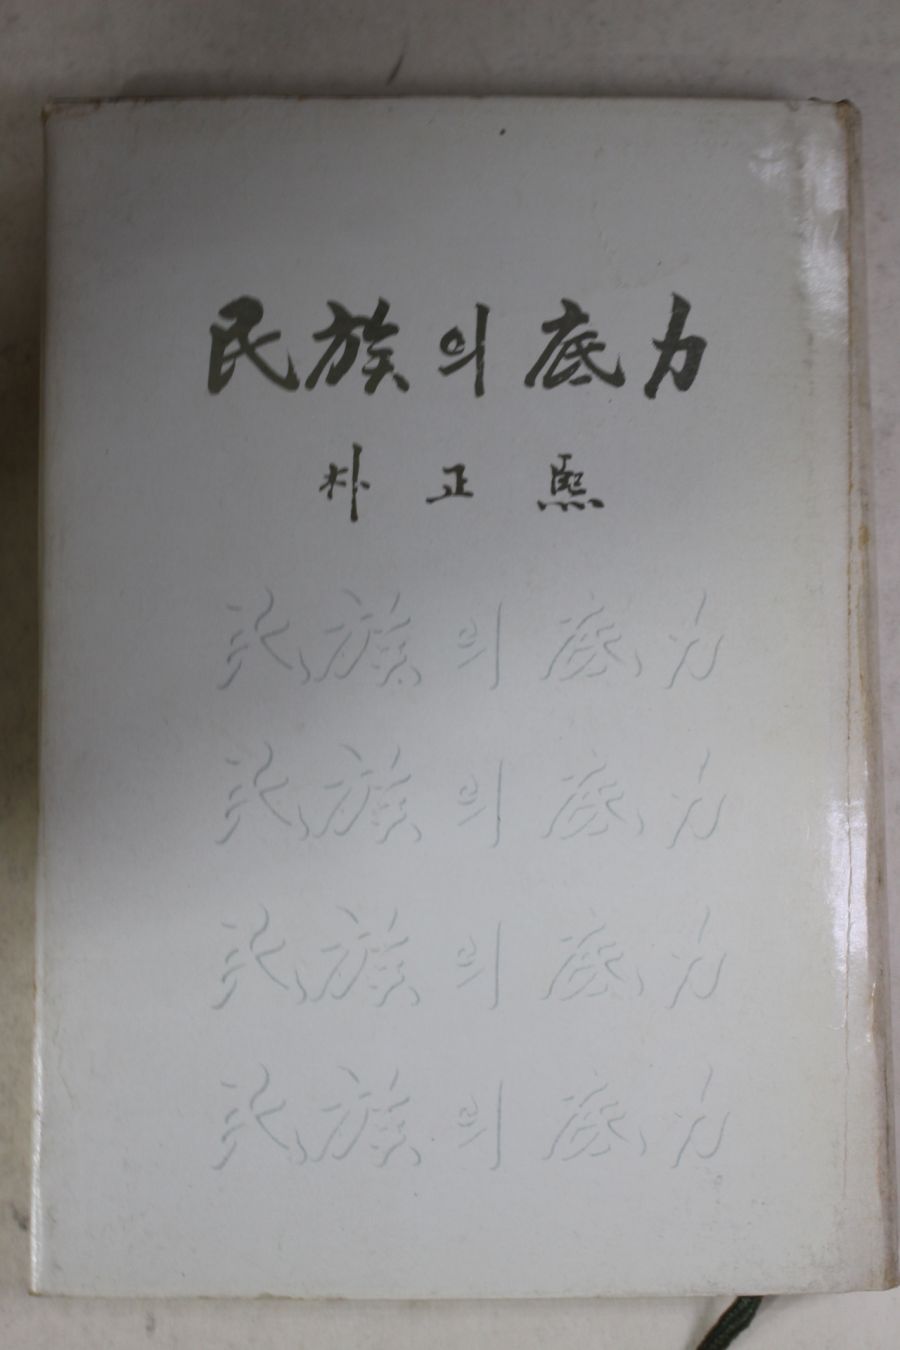 民族의 底力
朴正熙
民族의 底力
民族의 底力
民族의 底力
民族의 底力